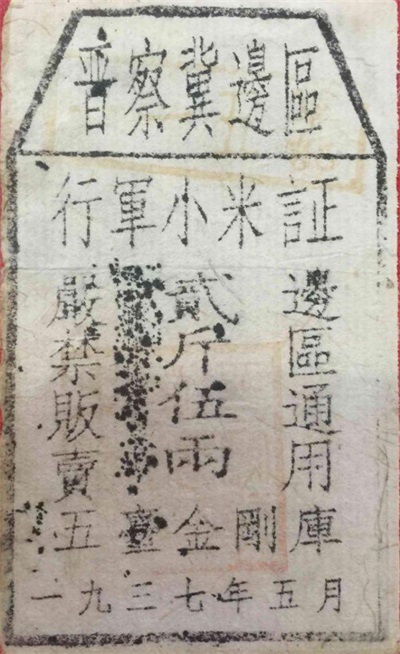 普察冀邊區
行軍小米証
邊區通用
貳斤伍兩
嚴禁販賣
五臺金剛庫
一九三七年五月